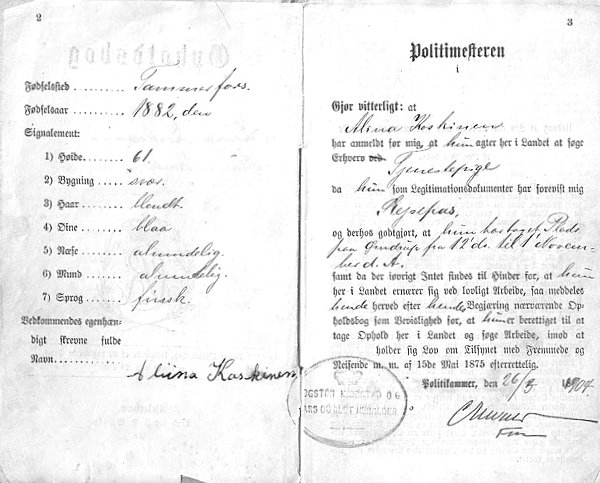 2
Fødselssted Tammerfors.
Fødselsaar 1882, den
Signalement:
1) Høide 61.
2) Bygning svær.
3) Haar blondt.
4) Øine blaa
5) Næse almindelig.
6) Mund almindelig.
7) Sprog finsk.
Vedkommendes egenhæn-
digt skrevne fulde
Navn
Aliina Koskinen
3
Politimesteren
i
Gjør vitterligt: at
Alina Koskinen
har anmeldt for mig, at hun agter her i Landet at søge
Erhverv ved Tjenestepige
da hun som Legitimationsdokumenter har forevist mig
Rejsepas,
og derhos godtgjort, at hun har taget Plads
paa fra 12' ds. til 1' Novem-
ber d. A.,
samt da der iøvrigt Intet findes til Hinder for, at hun
her i Landet ernærer sig ved lovligt Arbeide, saa meddeles
hende herved efter hendes Begjæring nærværende Op-
holdsbog som Bevislighed for, at hun er berettiget til at
tage Ophold her i Landet og søge Arbeide, imod at
holder sig Lov om Tilsynet med Fremmede og
Reisende m. m. af 15de Mai 1875 efterrettelig.
Politikammer, den 26/3 1904